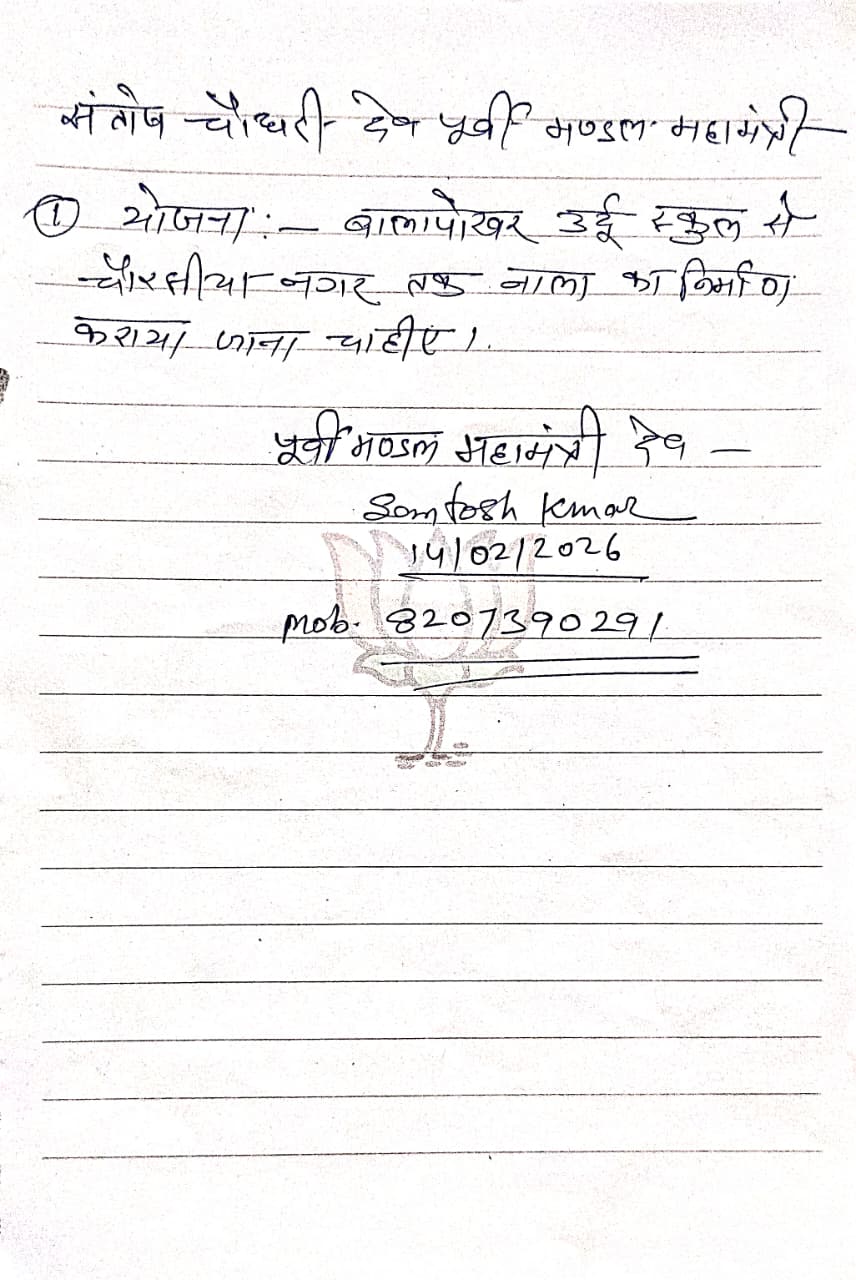 संतोष चौधरी- देव पूर्वी मण्डल महामंत्री-
① योजना :- बालापोखर उर्दू स्कुल से
चौरसीया-नगर तक नाला का निर्माण
कराया जाना चाहीए।
पूर्वी मण्डल महामंत्री देव -
Santosh Kmar
14/02/2026
mob. 8207390291